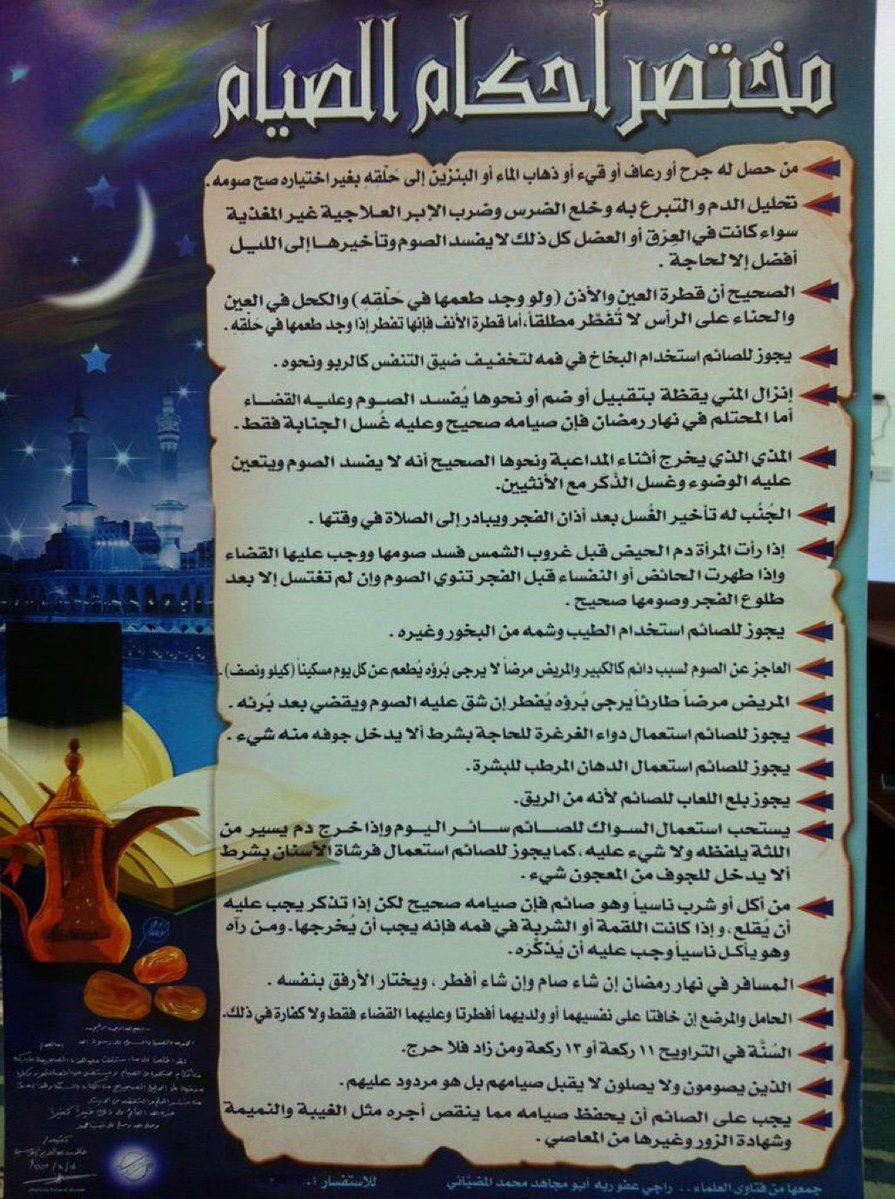 مختصر أحكام الصيام
من حصل له جرح أو رعاف أو قيء أو ذهاب الماء أو البنزين إلى حَلْقهِ بغير اختياره صح صومه.
تحليل الدم والتبرع به وخلع الضرس وضرب الإبر العلاجية غير المغذية
سواء كانت في العِرْق أو العضل كل ذلك لا يفسد الصوم وتأخيرها إلى الليل
أفضل إلا لحاجة .
الصحيح أن قطرة العين والأذن (ولو وجد طعمها في حَلْقهِ) والكحل في العين
والحناء على الرأس لا تُفَطّر مطلقاً، أما قطرة الأنف فإنها تفطر إذا وجد طعمها في حَلْقهِ.
يجوز للصائم استخدام البخاخ في فمه لتخفيف ضيق التنفس كالربو ونحوه .
إنزال المني يقظة بتقبيل أو ضم أو نحوها يُفسد الصوم وعليه القضاء
أما المحتلم في نهار رمضان فإن صيامه صحيح وعليه غُسل الجنابة فقط .
المذي الذي يخرج أثناء المداعبة ونحوها الصحيح أنه لا يفسد الصوم ويتعين
عليه الوضوء وغسل الذَّكَر مع الأنثيين.
الجُنُب له تأخير الغُسل بعد أذان الفجر ويبادر إلى الصلاة في وقتها .
إذا رأت المرأة دم الحيض قبل غروب الشمس فسد صومها ووجب عليها القضاء
وإذا طهرت الحائض أو النفساء قبل الفجر تنوي الصوم وإن لم تغتسل إلا بعد
طلوع الفجر وصومها صحيح .
يجوز للصائم استخدام الطيب وشمه من البخور وغيره .
العاجز عن الصوم لسبب دائم كالكبير والمريض مرضاً لا يرجى بُرؤه يُطعم عن كل يوم مسكيناً (كيلو ونصف).
المريض مرضاً طارئاً يرجى بُرؤه يُفطر إن شق عليه الصوم ويقضي بعد بُرئه .
يجوز للصائم استعمال دواء الغرغرة للحاجة بشرط ألا يدخل جوفه منه شيء .
يجوز للصائم استعمال الدهان المرطب للبشرة.
يجوز بلع اللعاب للصائم لأنه من الريق.
يستحب استعمال السواك للصائم سائر اليوم وإذا خرج دم يسير من
اللثة يلفظه ولا شيء عليه، كما يجوز للصائم استعمال فرشاة الأسنان بشرط
ألا يدخل للجوف من المعجون شيء .
من أكل أو شرب ناسياً وهو صائم فإن صيامه صحيح لكن إذا تذكر يجب عليه
أن يُقلع، وإذا كانت اللقمة أو الشربة في فمه فإنه يجب أن يُخرجها. ومن رآه
وهو يأكل ناسياً وجب عليه أن يُذكّره.
المسافر في نهار رمضان إن شاء صام وإن شاء أفطر ، ويختار الأرفق بنفسه .
الحامل والمرضع إن خافتا على نفسيهما أو ولديهما أفطرتا وعليهما القضاء فقط ولا كفارة في ذلك.
السُنَّة في التراويح ١١ ركعة أو ١٣ ركعة ومن زاد فلا حرج.
الذين يصومون ولا يصلون لا يقبل صيامهم بل هو مردود عليهم.
يجب على الصائم أن يحفظ صيامه مما ينقص أجره مثل الغيبة والنميمة
وشهادة الزور وغيرها من المعاصي .
جمعها من فتاوى العلماء .. راجي عفو ربه أبو مجاهد محمد المضيّاني
للاستفسار